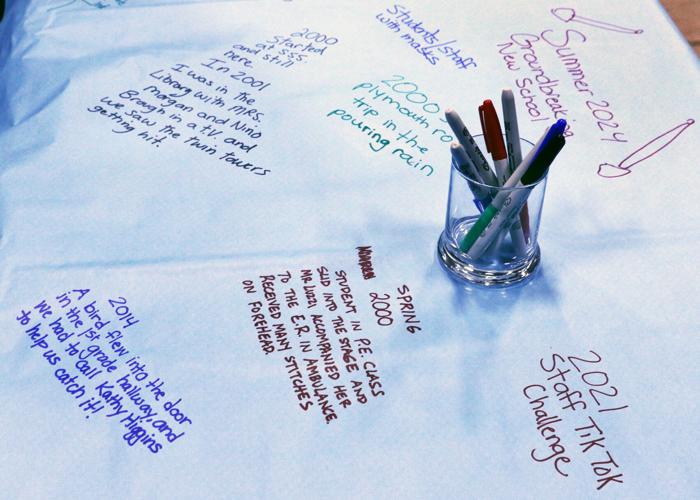 2000
Started
at SSS.
and still
here
In 2001
I was in the
Library with MRS.
Morgan and Nino
Brough in a TV. and
we saw the Twin Towers
getting hit.
Students/staff
with masks
2000
plymouth ro
trip in the
pouring rain
Summer 2024
Groundbreaking
New School
2014
A bird flew into the door
in the 1st grade hallway, and
we had to call Kathy Higgins
to help us catch it!
SPRING
2000
STUDENT IN P.E. CLASS
SLID INTO THE STAGE AND
MR LUZZI ACCOMPANIED HER
TO THE E.R IN AMBULANCE.
RECEIVED MANY STITCHES
ON FOREHEAD.
2021
Staff TikTok
Challenge